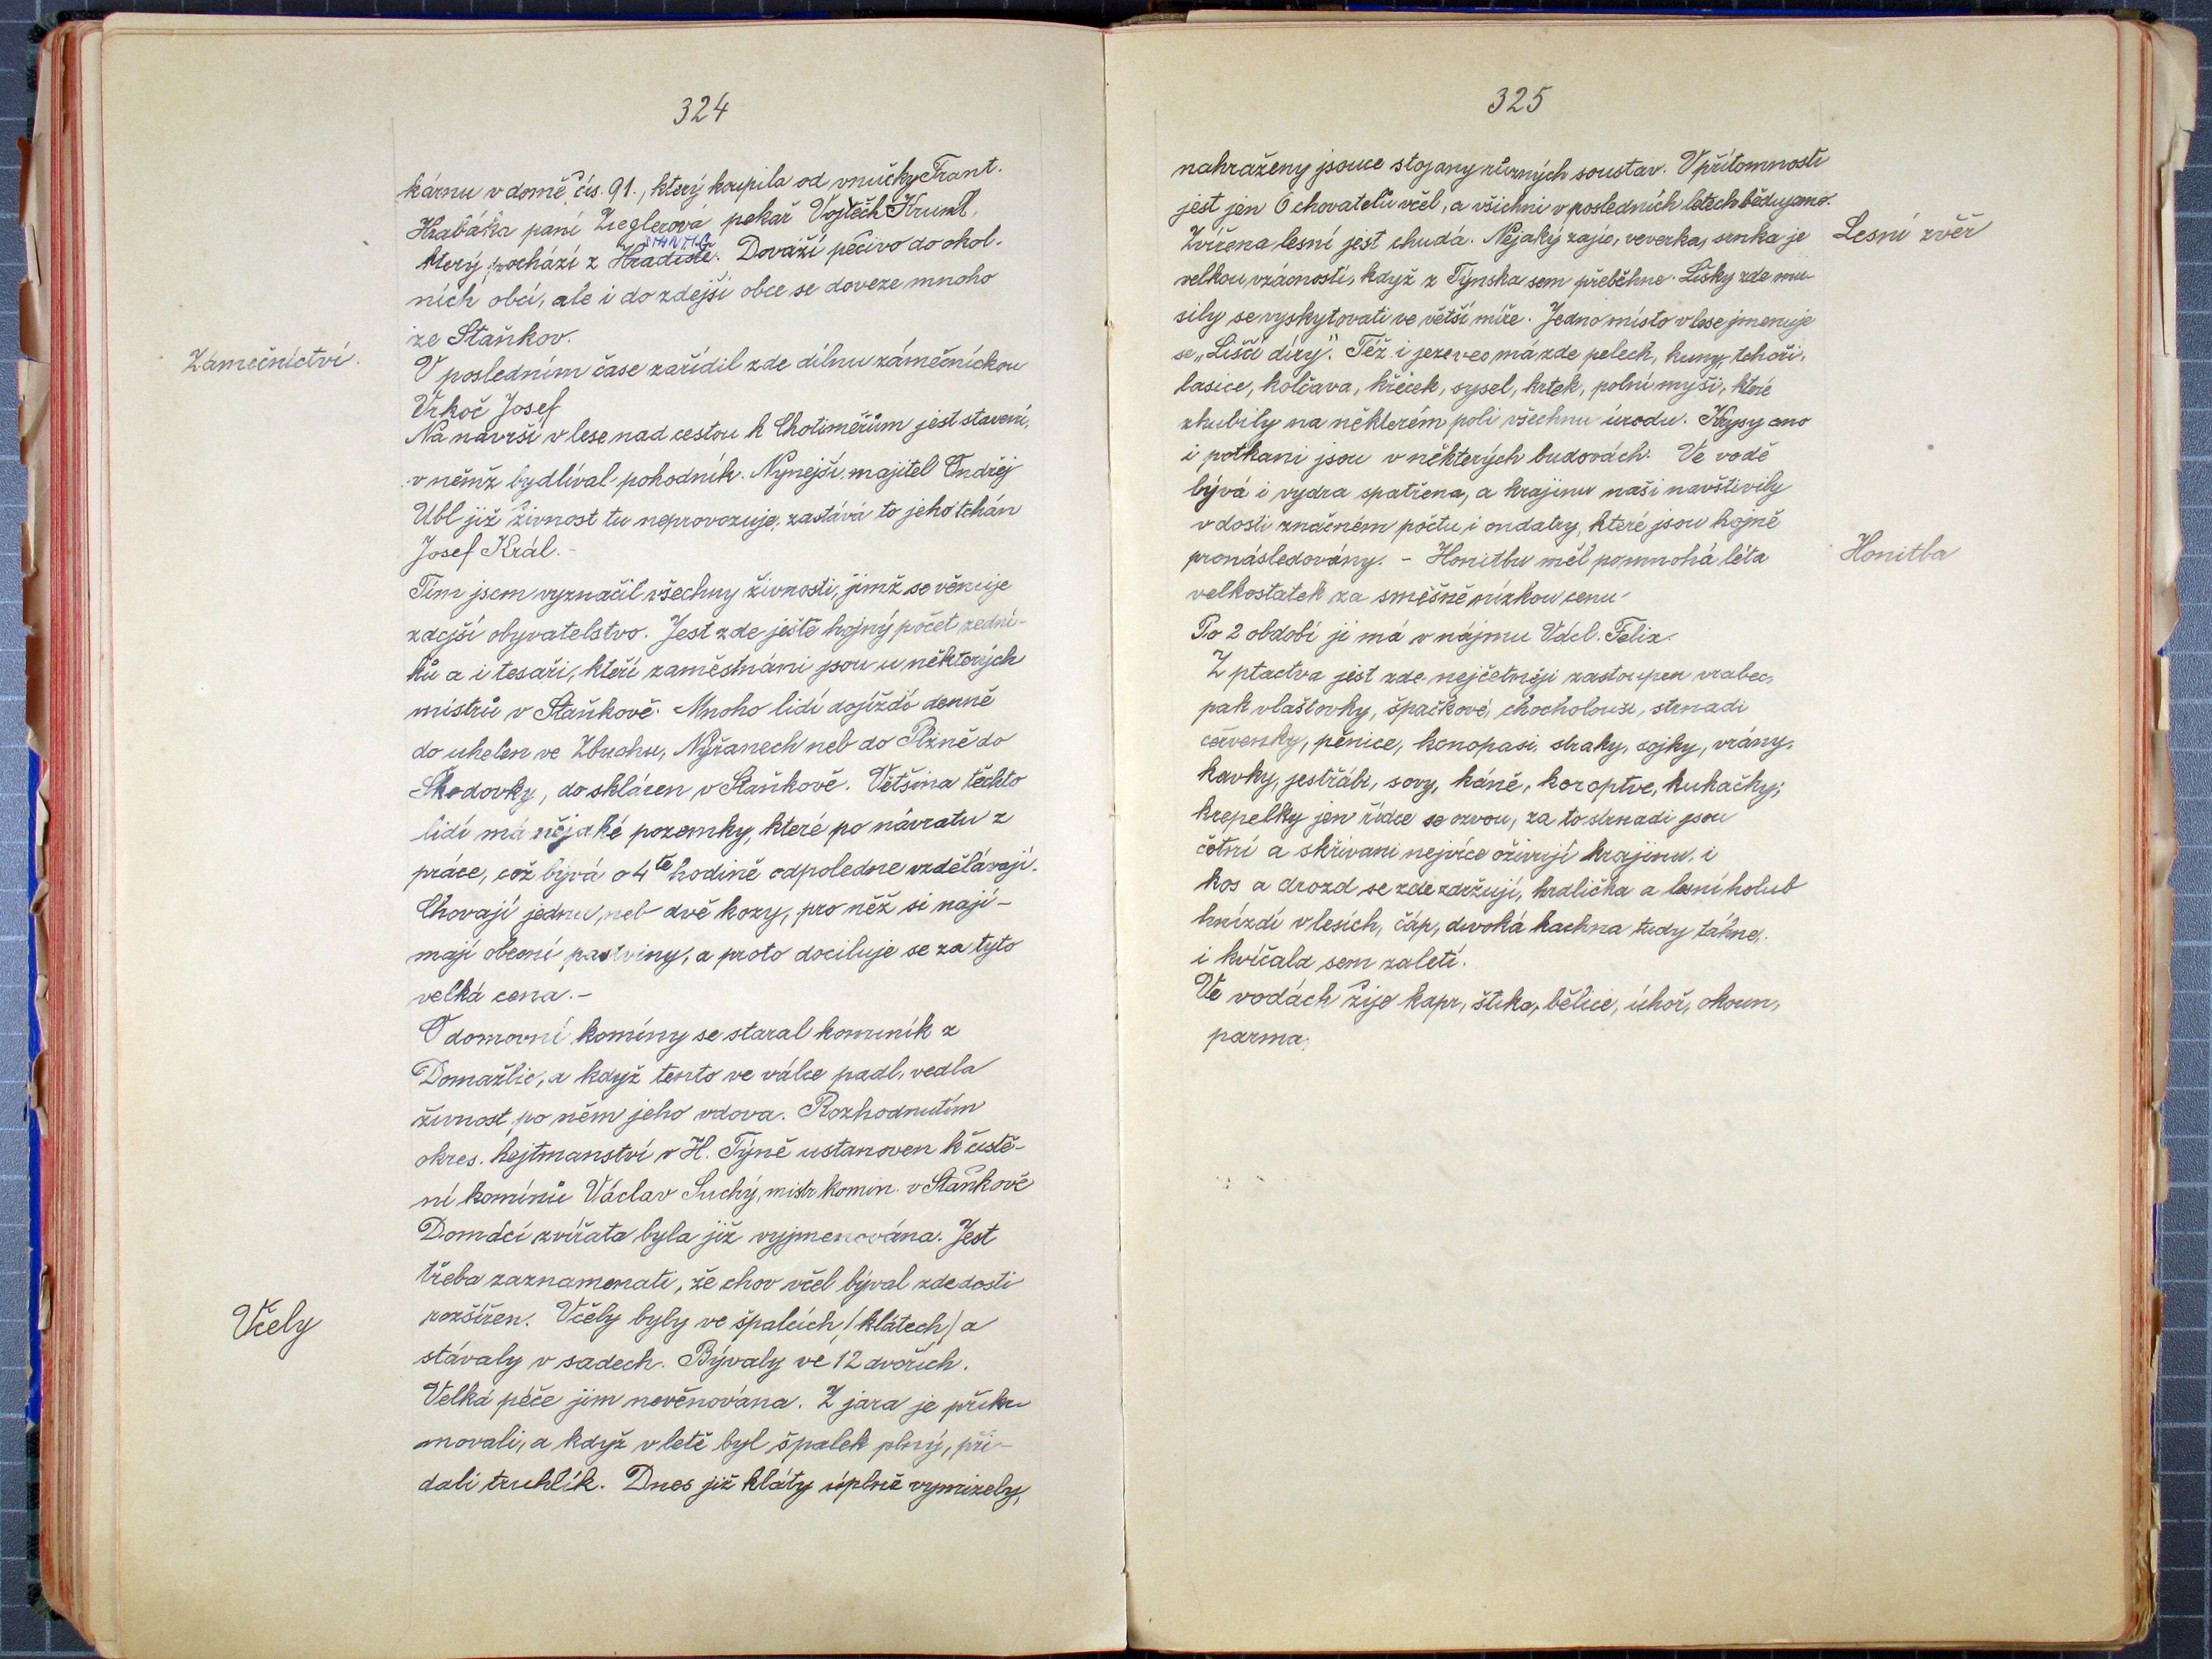 324
kárnu v domě čís. 91., který koupila od vnučky Frant.
Hrabáka paní Zieglerová pekař Vojtěch Kruml,
který pochází z Hradiště. Dováží pečivo do okol-
ních obcí, ale i do zdejší obce se doveze mnoho
ze Staňkov.
Zámečnictví.
V posledním čase zařídil zde dílnu zámečnickou
Vrkoč Josef
Na návrší v lese nad cestou k Chotiměřům jest stavení,
v němž bydlíval pohodník. Nynejší majitel Ondřej
Ubl již živnost tu neprovozuje, zastává to jeho tchán
Josef Král. -
Tím jsem vyznačil všechny živnosti, jimž se věnuje
zdejší obyvatelstvo. Jest zde ještě hojný počet zední-
ků a i tesaři, kteří zaměstnáni jsou u některých
mistrů v Staňkově. Mnoho lidí dojíždí denně
do uhelen ve Zbuchu, Nýřanech neb do Plzně do
Škodovky, do skláren v Staňkově. Většina těchto
lidí má nějaké pozemky, které po návratu z
práce, což bývá o 4té hodině odpoledne vzdělávají.
Chovají jednu, neb dvě kozy, pro něž si nají-
mají obecní pastviny, a proto dociluje se za tyto
velká cena. -
O domovní komíny se staral kominík z
Domažlic, a když tento ve válce padl, vedla
živnost po něm jeho vdova. Rozhodnutím
okres. hejtmanství v H. Týně ustanoven k čistě-
ní komínů Václav Suchý, mistr komin. v Staňkově
Domácí zvířata byla již vyjmenována. Jest
třeba zaznamenati, že chov včel býval zde dosti
Včely
rozšířen. Včely byly ve špalcích /klátech/ a
stávaly v sadech. Bývaly ve 12 dvořích.
Velká péče jim nevěnována. Z jara je přikr-
movali, a když v letě byl špalek plný, při-
dali truhlík. Dnes již kláty úplně vymizely,
325
nahraženy jsouce stojany různých soustav. V přítomnosti
jest jen 6 chovatelů včel, a všichni v posledních letech bědujeme.
Lesní zvěř
Zvířena lesní jest chudá. Nějaký zajíc, veverka, srnka je
velkou vzácností, když z Týnska sem přeběhne. Lišky zde mu-
sily se vyskytovati ve větší míře. Jedno místo v lese jmenuje
se „Liščí díry". Též i jezevec má zde pelech, kuny, tchoři,
lasice, kolčava, křeček, sysel, krtek, polní myši, které
zhubily na některém poli všechnu úrodu. Krysy ano
i potkani jsou v některých budovách. Ve vodě
bývá i vydra spatřena, a krajinu naši navštívily
v dosti značném počtu i ondatry, které jsou hojně
Honitba
pronásledovány. - Honitbu měl po mnohá léta
velkostatek za směšně nízkou cenu.
Po 2 období ji má v nájmu Václ. Felix.
Z ptactva jest zde nejčetněji zastoupen vrabec,
pak vlaštovky, špačkové, chocholouši, strnadi
červenky, pěnice, konopasi, straky, sojky, vrány,
kavky, jestřábi, sovy, káně, koroptve, kukačky,
krepelky jen řídce se ozvou, za to strnadi jsou
četní a skřivani nejvíce oživují krajinu, i
kos a drozd se zde zdržují, hrdlička a lesní holub
hnízdí v lesích, čáp, divoká kachna tudy táhne,
i kvíčala sem zaletí.
Ve vodách žije kapr, štika, bělice, úhoř, okoun,
parma.